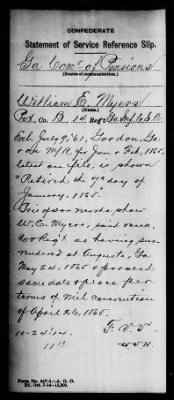 CONFEDERATE
Statement of Service Reference Slip.
Ga Com'r of Pensions
(Source of communication.)
William E. Myers
(Name.)
Pvt, Co. B, 14 Reg't Ga Inf. C.S.A.
Enl. July 9, '61, Gordon, Ga
on M/R for Jan & Feb, 1865,
latest on file, is shown
"Retired the 7th day of
January, 1865."
Pris of war records show
W. E. Myers, paid rank,
Co & Reg't as having sur-
rendered at Augusta, Ga
May 24, 1865 & paroled
same date of place per
terms of Mil convention
of April 26, 1865.
10-24-14.
Form No.
Ed. Oct. 7-14